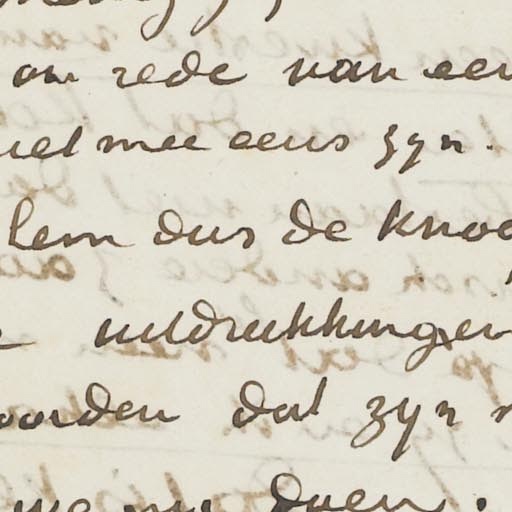 om rede van een
niet mee eens zyn.
lem dus de knoo
uitdrukkingen
oorden dat zyn
doen.